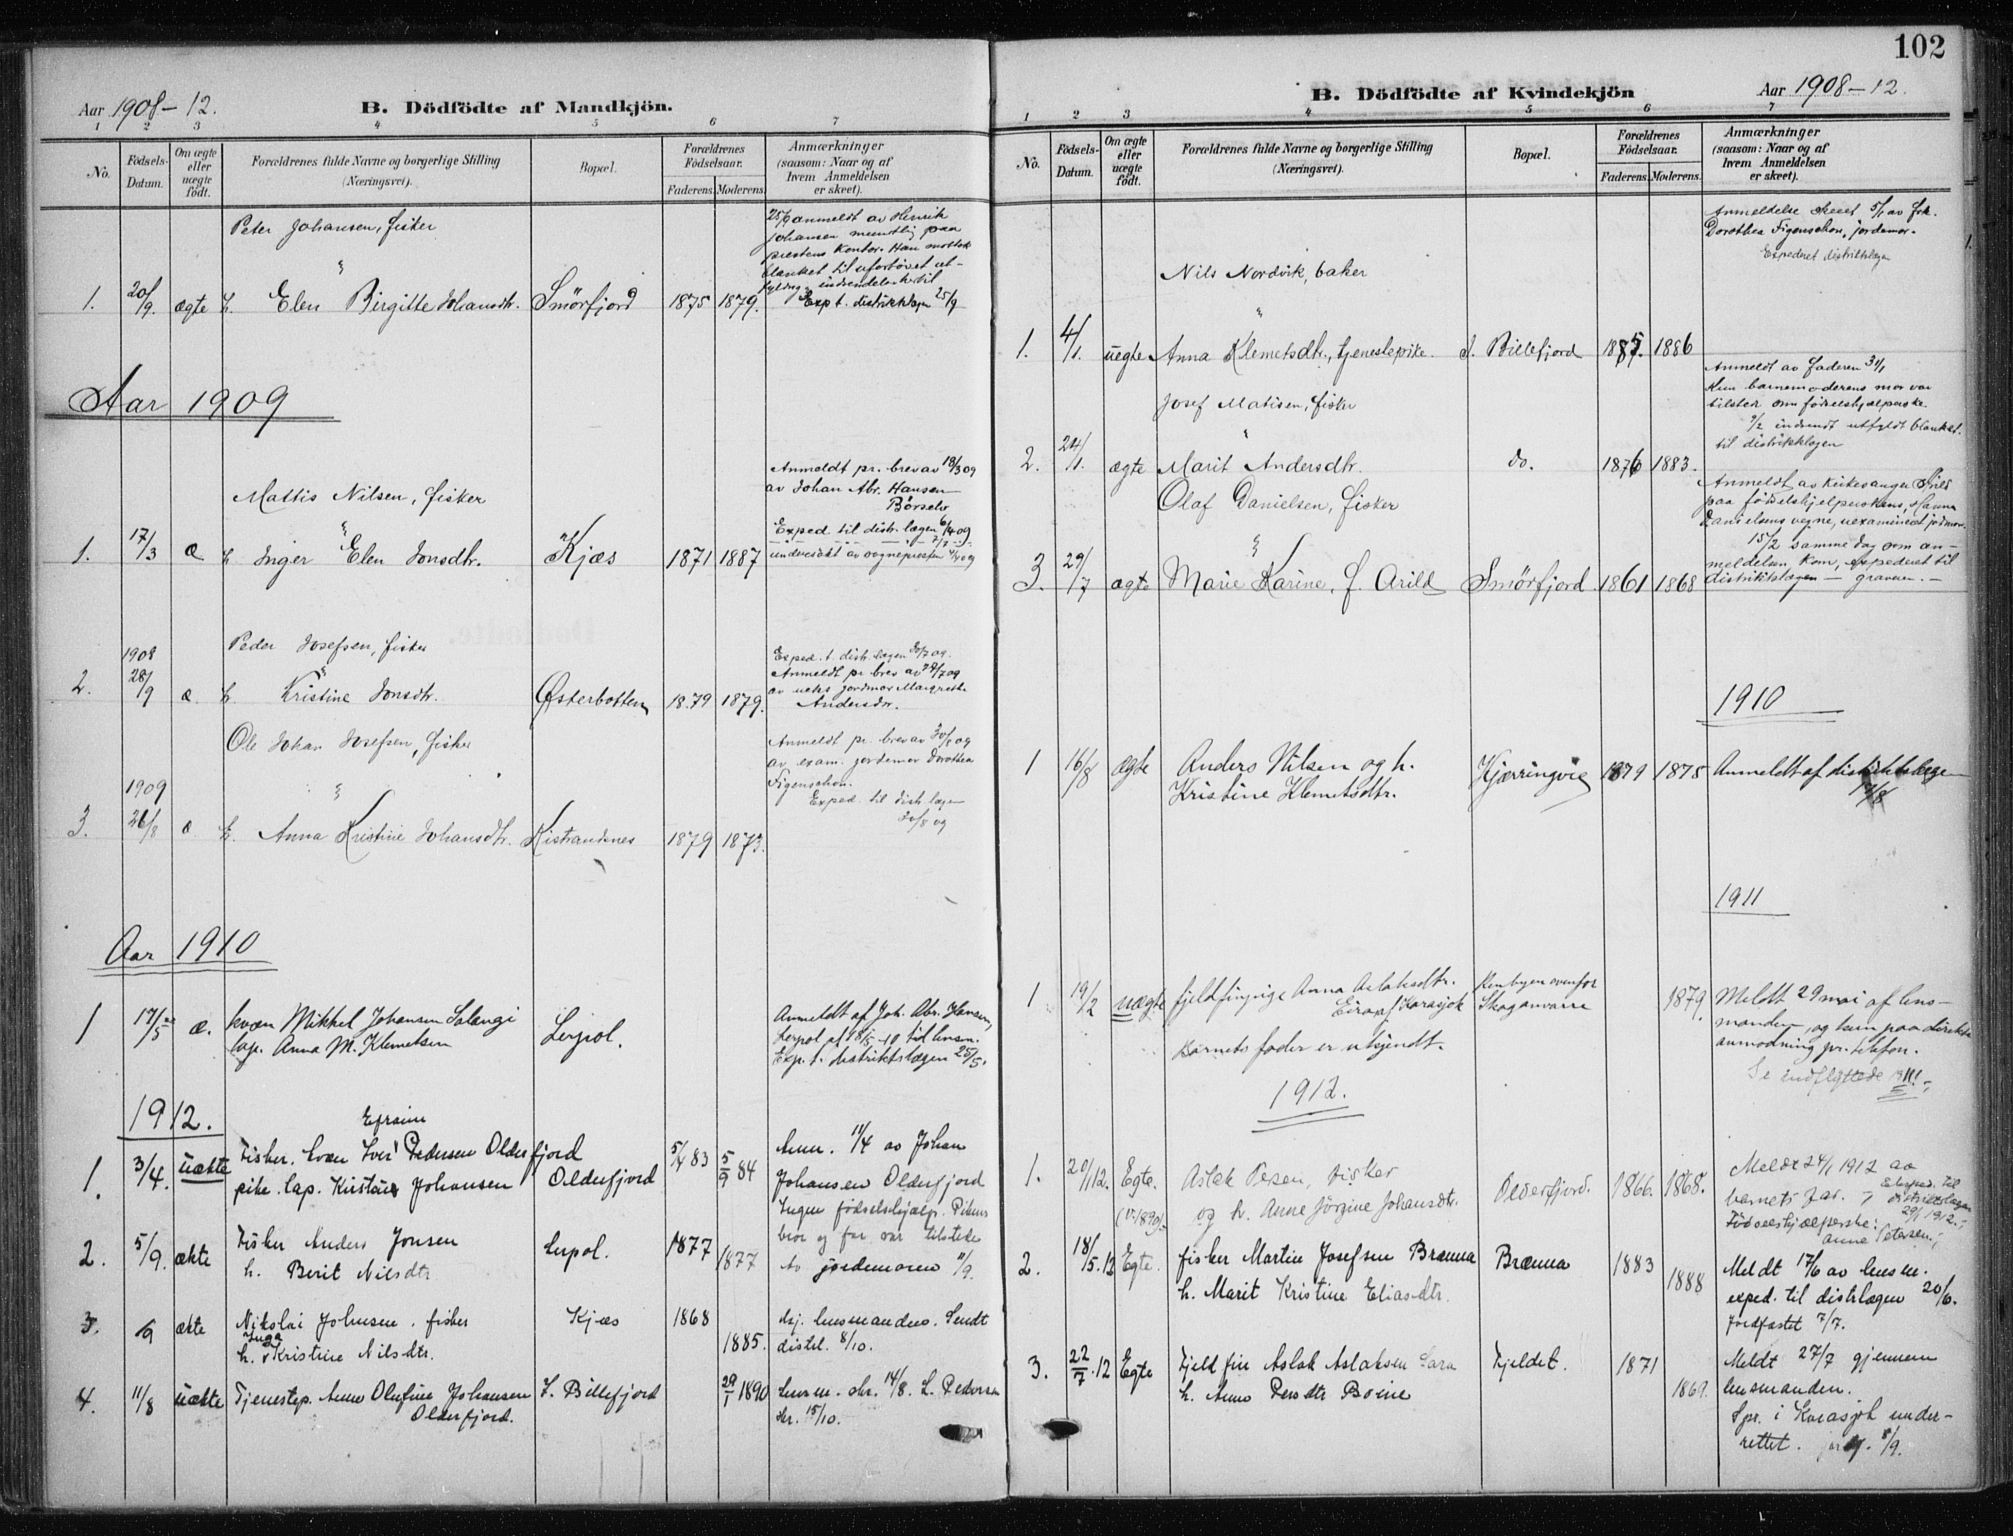 102
Aar 1908-12.
B. Dödfödte af Mandkjön.
1 2 3 4 5 6 7
No.
Födsels-Datum.
Om ægte eller uægte født.
Forældrenes fulde Navne og borgerlige Stilling
(Næringsvei).
Bopæl.
Forældrenes Födselsaar.
Faderens. Moderens.
Anmærkninger
(saasom: Naar og af
hvem Anmeldelsen
er skeet).
Peter Johansen, fisker
25/9 anmeldt av Henrik
Johansen mundtlig paa
prestens kontor. Han mottok
blanket til ufortøvet ut-
1. 20/9. ægte h. Elen Birgitte Johansdtr. Smörfjord 1875 1879.
Exp t. distriktslægen 25/9
Aar 1909
Mattis Nilsen, fisker
Anmeldt pr. brev av 18/3 09
av Johan Abr. Hansen
Børselv
Exped. til distr. lægen 6/4 09
1. 17/3 æ h Inger Elen Jonsdtr. Kjæs 1871 1887
Peder Josefsen, fisker
1908
2. 28/9 æ. h Kristine Jonsdtr. Østerbotten 1879 1879.
Exped. t. distr. lægen 30/7 09.
Anmeldt pr. brev av
av jordmor Margrethe
Andersdtr.
Ole Johan Josefsen, fisker
1909
3. 26/8 æ h. Anna Kristine Johansdtr. Kistrandsnes 1879 1873.
Anmeldt pr. brev av 30/8 09
av exam. jordemor Dorothea
Figenschou.
Exped. til distr. lægen
30/8 09
Aar 1910
1 17/5 æ. kvæn Mikkel Johansen Salangi
lap. Anna M. Klemetsen
Lerpol.
Anmeldt af Joh. Abr. Hansen,
Lerpol pr 18/5 -10 til lensm.
Exp. t. distriktslægen 25/5.
1912.
Efraim
1. 3/4. uækte Fisker. kvæn Iver Pedersen Olderfjord
pike. lap. Kristine Johansen Olderfjord 5/4 83 5/9 84
Anm. 11/4 av Johan
Johansen Olderfjord
Ingen fødselshjælp. Pikens
bror og far var tilstede
2. 5/9. ækte Fisker Anders Jonsen
h. Berit Nilsdtr Lerpol. 1877 1877
Av jordemoren 11/9.
3. /9 ækte Nikolai Johnsen. fisker
Inga
h. Kristine Nilsdtr. Kjæs 1868 1885.
lensmanden. Sendt
distrl. 8/10.
4. 11/8 uækte Tjenestep. Anne Olufine Johansen
Olderfjord.
I. Billefjord 29/1 1890
Lensm. skr. 14/8. L. Pedersen
skr. 15/10.
B. Dödfödte af Kvindekjön
Aar 1908-12.
1 2 3 4 5 6 7
No.
Födsels-Datum.
Om ægte eller uægte födt.
Forældrenes fulde Navne og borgerlige Stilling
(Næringsvei).
Bopæl.
Forældrenes Födselsaar.
Faderens. Moderens.
Anmærkninger
(saasom: Naar og af
hvem Anmeldelsen
er skeet).
Anmeldelse skeet 5/1 av frk.
Dorothea Figenschou, jordemor.
Expederet distriktslægen
Nils Nordvik, baker
1. 4/1. uegte Anna Klemetsdtr., tjenestepike. I. Billefjord 1885. 1886
Josef Matisen, fisker
Anmeldt av faderen 31/1
Kun barnemoderens mor var
tilstede som fødselshjælperske.
9/2 indsendt utfyldt blanket
til distriktslægen
2. 24/1. ægte Marit Andersdtr. do. 1876 1883.
Olaf Danielsen, fisker
Anmeldt av kirkesanger Arild
paa födselshjelperskens, Hanna
Danielsens vegne, uexamineret jordmor
15/2 samme dag som an-
meldelsen kom, expederet til
distriktslægen - graven. -
3. 29/7 ægte Marie Karine, f. Arild Smörfjord. 1861 1868
1910
1 16/8 ægte Anders Nilsen og h.
Kristine Klemetsdtr. Kjærringvig 1879 1875
Anmeldt af distriktslægen
17/8
1911
1 19/2 uægte fjeldfinpige Anna Aslaksdtr.
Eira af Karasjok
Renbyen ovenfor
Skoganvarre
1879.
Barnets fader er ukjendt.
Meldt 29 mai af lens-
manden, og kun paa direkte
anmodning pr. telefon.
Se indflyttede 1911
1912.
1. 20/1 12. Egte. Aslak Persen, fisker
og h. Anne Jörgine Johansdtr. Olderfjord. 1866. 1868.
Meldt 24/1 1912 av
barnets far.
Eksped. til
distriktslægen
29/1 1912.
Födselshjælperske:
Anne Petersen.
2. 18/5. 12 Egte. fisker Martin Josefsen Brænna
h. Marit Kristine Eliasdtr. Brænna 1883 1888
Meldt 17/6 av lensm.
exped. til distrlægen 20/6.
Jordfæstet 7/7.
3. 22/7 12 Egte Fjeldfin Aslak Aslaksen Sara
h. Anne Persdtr Boine Fjeldet. 1871 1869.
Meldt 27/7 gjennem
lensmanden.
Spr. i Karasjok under-
rettet. 8/9.